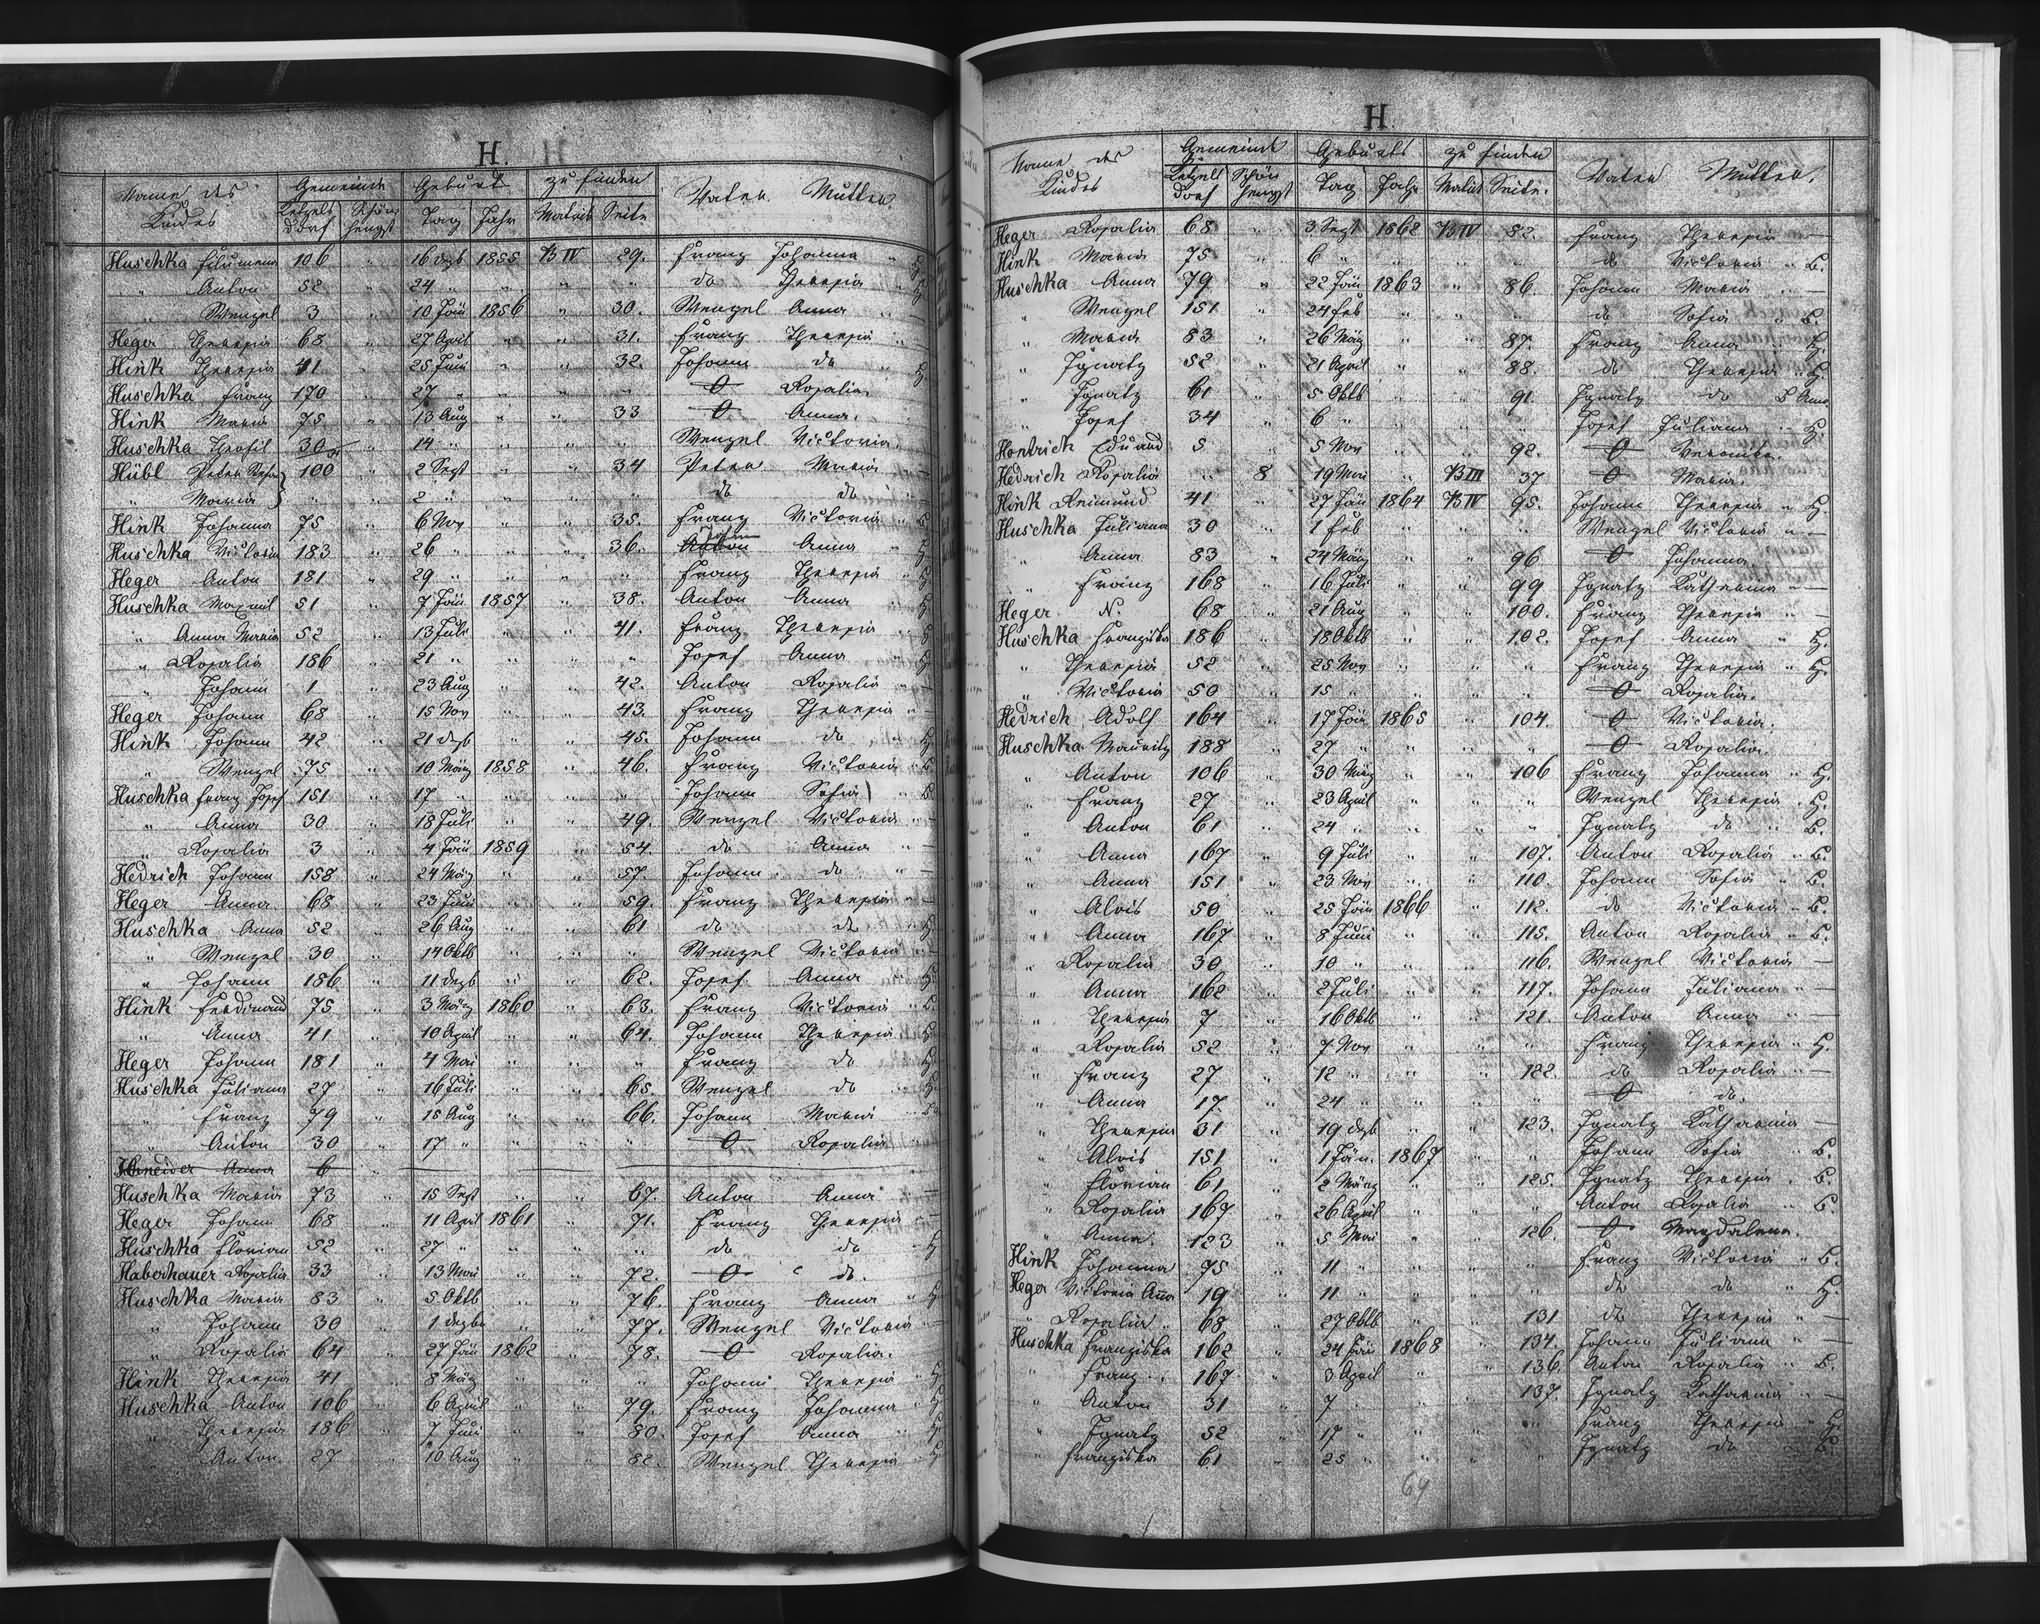 H.
Name des Kindes Gemeinde Geburt zu finden Vater Mutter
Ketzelsdorf Schönhengst Tag Jahr Matrik Seite
Huschka Filumena 106 " 16 dezb 1855 B IV 29. Franz Johanna
" Anton 52 " 24 " " " " do Theresia
" Wenzel 3 " 10 Jän 1856 " 30. Wenzel Anna " —
Heger Theresia 68 " 27 April " " 31. Franz Theresia " —
Hink Theresia 41 " 25 Juni " " 32. Johann do " H.
Huschka Franz 170 " 27 " " " " O Rosalia
Hink Maria 75 " 13 Aug " " 33 O Anna.
Huschka Theofil 30 " 14 " " " " Wenzel Victoria
Hübl Peter 100 " 2 Sept " " 34 Peter Maria " —
" Maria } " " 2 " " " " do do " —
Hink Johanna 75 " 6 Nov " " 35. Franz Victoria
Huschka Victoria 183 " 26 " " " 36. Anna
Heger Anton 181 " 29 " " " " Franz Theresia
Huschka Maxmil 51 " 7 Jän 1857 " 38. Anton Anna
" Anna Maria 52 " 13 Juli " " 41. Franz Theresia
" Rosalia 186 " 21 " " " " Josef Anna
" Johann 1 " 23 Aug " " 42. Anton Rosalia " —
Heger Johann 68 " 15 Nov " " 43. Franz Theresia " —
Hink Johann 42 " 21 dezb " " 45. Johann do
" Wenzel 75 " 10 März 1858 " 46. Franz Victoria
Huschka Franz Josef 151 " 17 " " " " Johann Sofia
" Anna 30 " 18 Juli " " 49. Wenzel Victoria " —
" Rosalia 3 " 4 Jän 1859 " 54. do Anna " —
Hedrich Johann 158 " 24 März " " 57. Johann do " —
Heger Anna 68 " 23 Juni " " 59. Franz Theresia " —
Huschka Anna 52 " 26 Aug " " 61 do do
" Wenzel 30 " 14 Oktb " " " Wenzel Victoria
" Johann 186 " 11 dezb " " 62. Josef Anna
Hink Ferdinand 75 " 3 März 1860 " 63. Franz Victoria
" Anna 41 " 10 April " " 64. Johann Theresia
Heger Johann 181 " 4 Mai " " " Franz do
Huschka Juliana 27 " 16 Juli " " 65. Wenzel do
" Franz 79 " 15 Aug " " 66. Johann Maria
" Anton 30 " 17 " " " " O Rosalia
Schneider Anna 6
Huschka Maria 73 " 15 Sept " " 67. Anton Anna
Heger Johann 68 " 11 April 1861 " 71. Franz Theresia
Huschka Florian 52 " 27 " " " " do do
Haberhauer Rosalia 33 " 13 Mai " " 72. O do.
Huschka Maria 83 " 5 Oktb " " 76. Franz Anna
" Johann 30 " 1 dezb " " 77. Wenzel Victoria
" Rosalia 64 " 27 Jän 1862 " 78. O Rosalia.
Hink Theresia 41 " 8 März " " " Johann Theresia
Huschka Anton 106 " 6 April " " 79. Franz Johanna
" Theresia 186 " 7 Juni " " 80. Josef Anna
" Anton. 27 " 10 Aug " " 82. Wenzel Theresia
H.
Name des Kindes Gemeinde Geburts zu finden Vater Mutter.
Ketzelsdorf Schönhengst Tag Jahr Matrik Seite.
Heger Rosalia 68 " 3 Sept 1862 B IV 82. Franz Theresia —
Hink Maria 75 " 6 " " " " do Victoria " B.
Huschka Anna 79 " 22 Jän 1863 " 86. Johann Maria " —
" Wenzel 151 " 24 Feb " " " do Sofia " B.
" Maria 83 " 26 März " " 87. Franz Anna H.
" Ignatz 52 " 21 April " " 88. do Theresia " H.
" Ignatz 61 " 5 Oktb " " 91. Ignatz do B
" Josef 34 " 6 " " " " Josef Juliana " H.
Hontrich Eduard 5 " 5 Nov " " 92. O Veronika.
Hedrich Rosalia " 8 19 Mai " B III 37 O Maria.
Hink Reimund 41 " 27 Jän 1864 B IV 95. Johann Theresia " H.
Huschka Juliana 30 " 1 Feb " " " Wenzel Victoria " —
" Anna 83 " 24 März " " 96 O Johanna.
" Franz 168 " 16 Juli " " 99 Ignatz Katharina " —
Heger N. 68 " 21 Aug " " 100. Franz Theresia " —
Huschka Franziska 186 " 18 Oktb " " 102. Josef Anna " H.
" Theresia 52 " 25 Nov " " " Franz Theresia " H.
" Victoria 50 " 15 " " " " O Rosalia.
Hedrich Adolf 164 " 17 Jän 1865 " 104. O Victoria.
Huschka Mauritz 188 " 27 " " " " O Rosalia.
" Anton 106 " 30 März " " 106 Franz Johanna " H.
" Franz 27 " 23 April " " " Wenzel Theresia " H.
" Anton 61 " 24 " " " " Ignatz do " B.
" Anna 167 " 9 Juli " " 107. Anton Rosalia " B.
" Anna 151 " 23 Nov " " 110. Johann Sofia " B.
" Alois 50 " 25 Jän 1866 " 112. do Victoria " B.
" Anna 167 " 8 Juni " " 115. Anton Rosalia " B.
" Rosalia 30 " 10 " " " 116. Wenzel Victoria —
" Anna 162 " 2 Juli " " 117. Johann Juliana " —
" Theresia 7 " 16 Oktb " " 121. Anton Anna " —
" Rosalia 52 " 7 Nov " " " Franz Theresia " H.
" Franz 27 " 12 " " " 122. do Rosalia " —
" Anna 17. " 24 " " " " O do.
" Theresia 31 " 19 dezb " " 123. Ignatz Katharina —
" Alois 151 " 1 Jän. 1867 " " Johann Sofia " B.
" Florian 61 " 2 März " " 125. Ignatz Theresia " B.
" Rosalia 167 " 26 April " " " Anton Rosalia " B.
" Anna. 123 " 5 Mai " " 126. O Magdalena.
Hink Johanna 75 " 11 " " " " Franz Victoria " B.
Heger Victoria Anna 19 " 11 " " " " do do " H.
" Rosalia " 68 " 27 Oktb " " 131 do Theresia " —
Huschka Franziska 162 " 24 Jän 1868 " 134. Johann Juliana " —
" Franz 167 " 3 April " " 136. Anton Rosalia " B.
" Anton 31 " 7 " " " 137. Ignatz Katharina " —
" Ignatz 52 " 17 " " " " Franz Theresia " H.
" Franziska 61 " 25 " " " " Ignatz do " B.
69